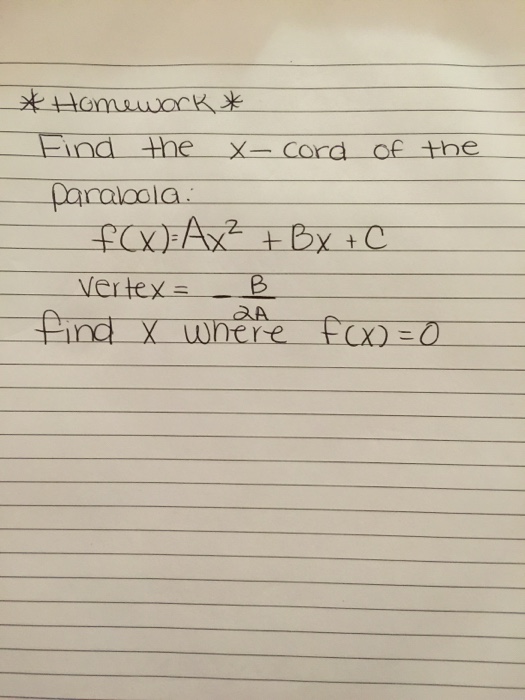 * Homework *
Find the x-cord of the
parabola:
f(x)=Ax² + Bx + C
vertex = - B
2A
find x where f(x)=0